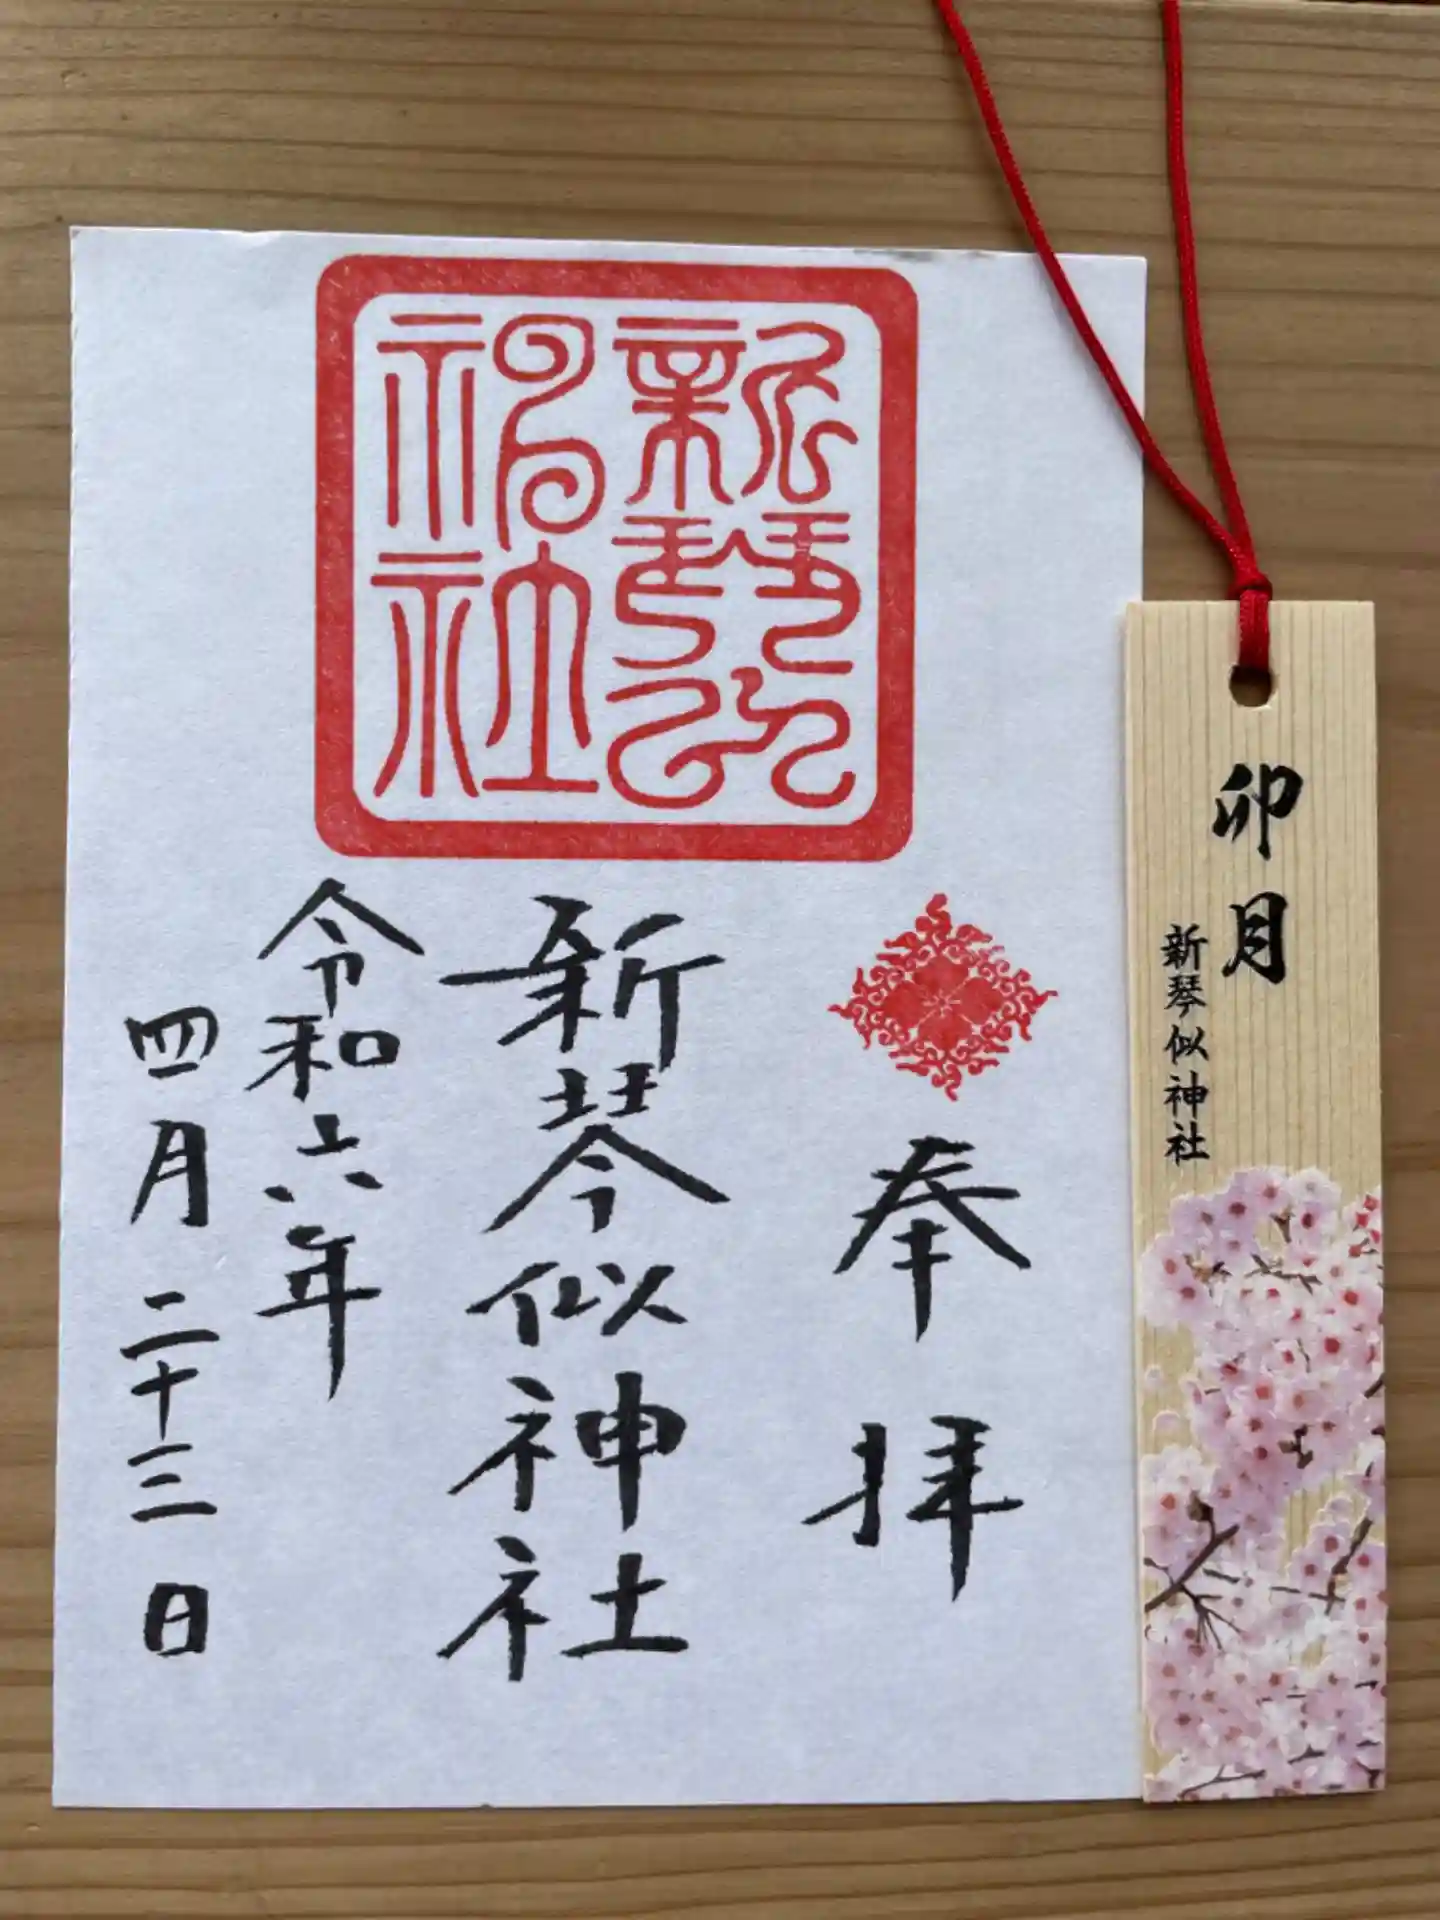 卯月
新琴似神社
新琴似神社
奉拝
新琴似神社
令和六年
四月二十三日